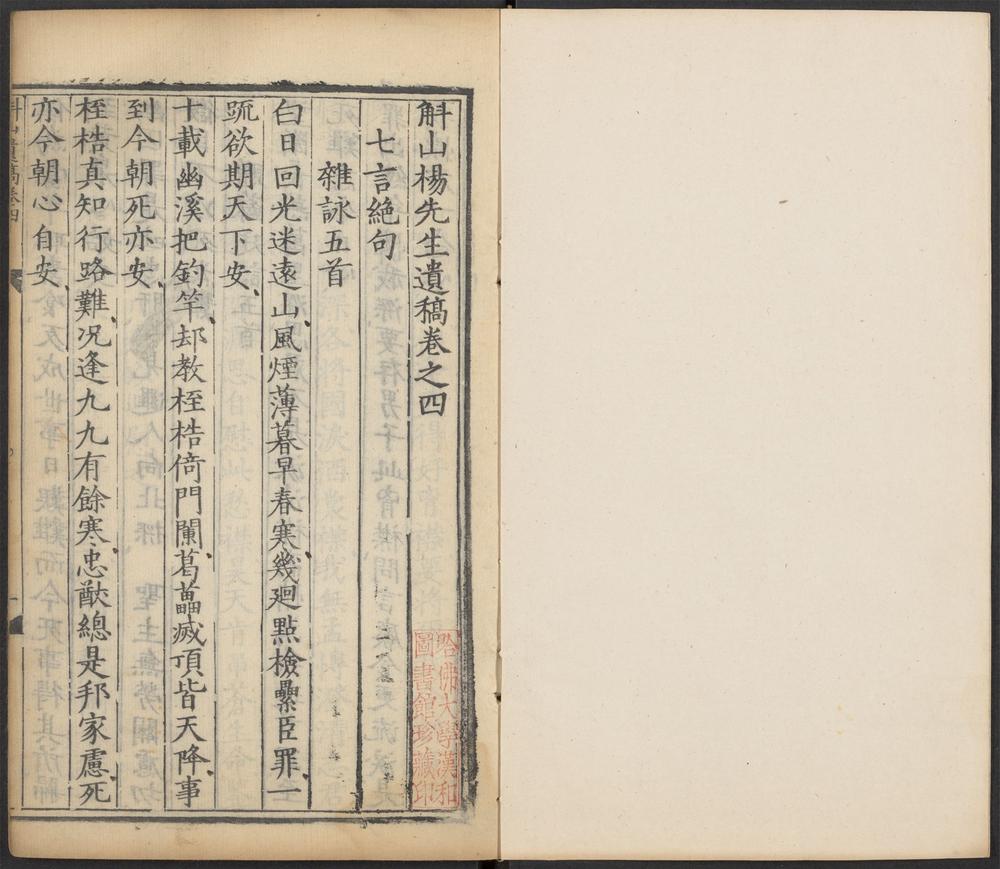 斛山楊先生遺稿卷之四
七言絕句
雜詠五首
白日回光迷遠山風煙薄暮早春寒幾廻點檢纍臣罪一
䟽欲期天下安
十載幽溪把釣竿却教桎梏倚門闌葛藟滅頂皆天降事
到今朝死亦安
桎梏真知行路難况逢九九有餘寒忠猷總是邦家慮死
亦今朝心自安
斛山遺稿卷四
一
哈佛大學漢和
圖書館珍藏印